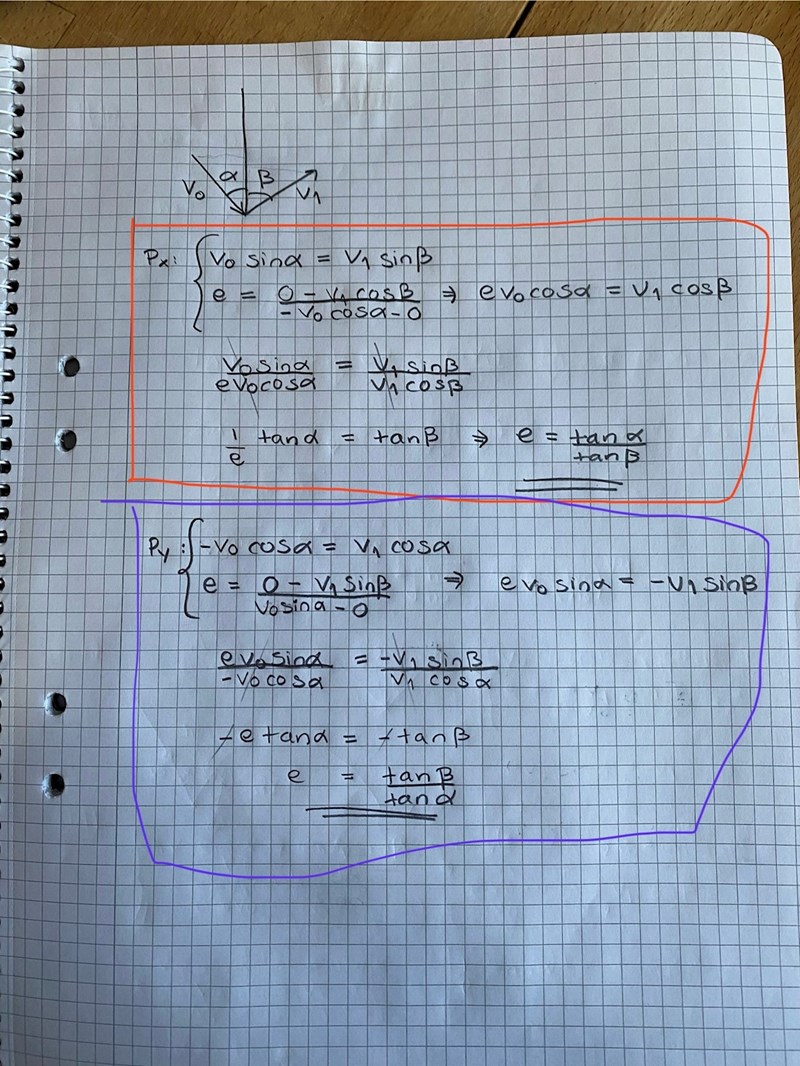 α β
V₀ V₁
Pₓ: { V₀ sinα = V₁ sinβ
e = (0 - V₁ cosβ)/(-V₀ cosα - 0) ⇒ e V₀ cosα = V₁ cosβ
(V₀ sinα)/(e V₀ cosα) = (V₁ sinβ)/(V₁ cosβ)
1/e tanα = tanβ ⇒ e = tanα/tanβ
Py: { -V₀ cosα = V₁ cosα
e = (0 - V₁ sinβ)/(V₀ sinα - 0) ⇒ e V₀ sinα = -V₁ sinβ
(e V₀ sinα)/(-V₀ cosα) = (-V₁ sinβ)/(V₁ cosα)
-e tanα = -tanβ
e = tanβ/tanα